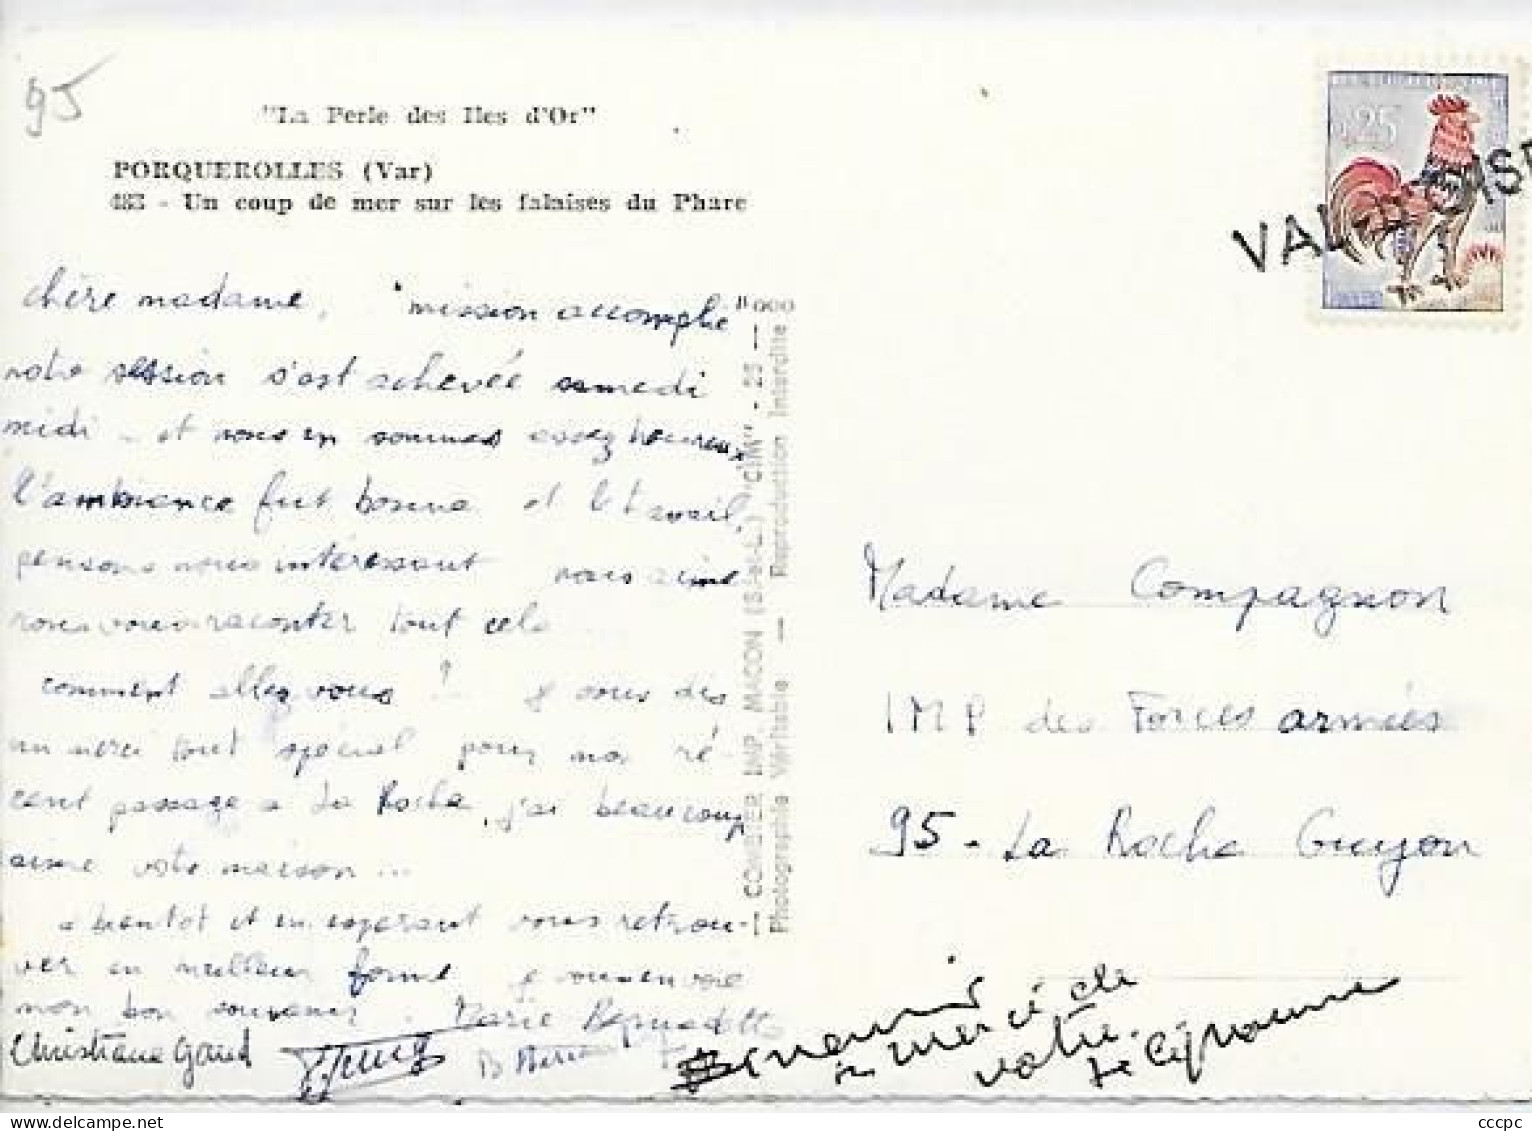 95
"La Perle des Iles d'Or"
PORQUEROLLES (Var)
483 - Un coup de mer sur les falaises du Phare
0,25
VAL D'OISE
chère madame, "mission accomplie"
notre session s'est achevée samedi
midi - et nous en sommes assez heureux
l'ambiance fut bonne et le travail,
pensons nous intéressant
raconter tout cela
comment allez vous ? je vous dis
un merci tout spécial pour mon ré-
cent passage a La Roche, j'ai beaucoup
aimé votre maison...
a bientot et en esperant vous retrou-
ver en meilleur forme je vous envoie
mon bon souvenir. Marie Bernadette
Christiane Gaud
Souvenir
merci de
votre
COMBIER IMP. MACON (S.-et-L.) "CIM" - 25 -
Photographie Véritable — Reproduction Interdite
Madame Compagnon
IMP des Forces armées
95 - La Roche Guyon
cccpc